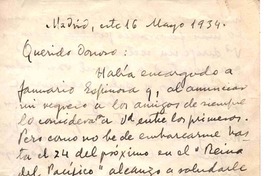 Madrid, este 16 Mayo 1934.
Querido Donoso:
Había encargado a
Januario Espinosa q, al anunciar
mi regreso a los amigos de siempre
lo considerara Vd entre los primeros.
Pero como no he de embarcarme has
ta el 24 del próximo en el "Reina
del Pacífico" alcanzo a saludarle